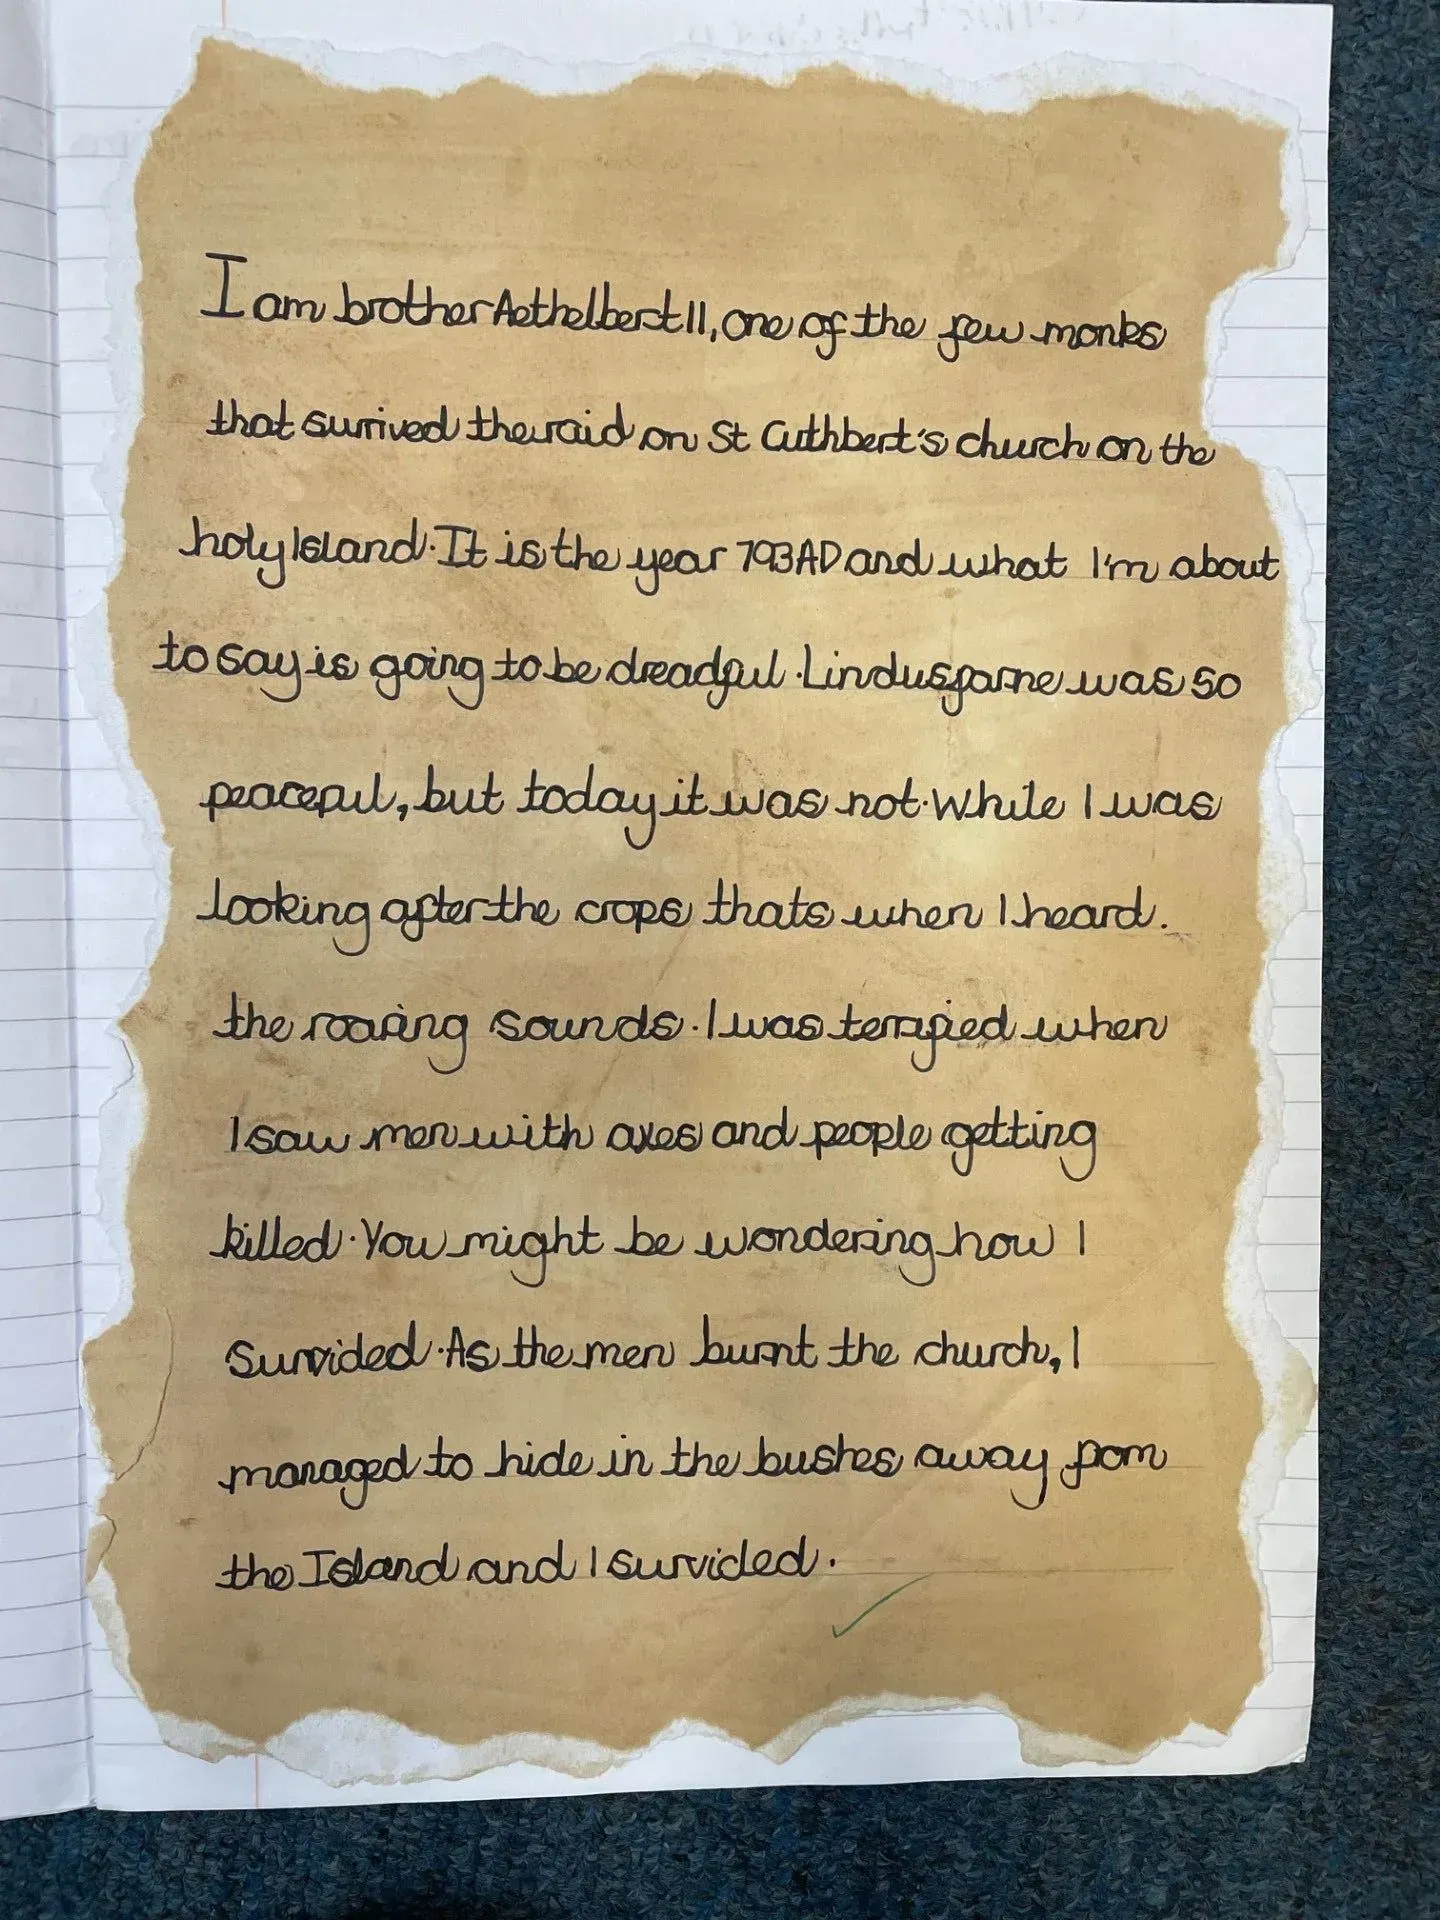 I am brother Aethelbert II, one of the few monks
that survived the raid on St Cuthbert's church on the
holy Island. It is the year 793AD and what I'm about
to say is going to be dreadful. Lindusfarne was so
peaceful, but today it was not. While I was
looking after the crops thats when I heard.
the roaring sounds. I was terrafied when
I saw men with axes and people getting
killed. You might be wondering how I
Survided. As the men burnt the church, I
managed to hide in the bushes away from
the Island and I survided.